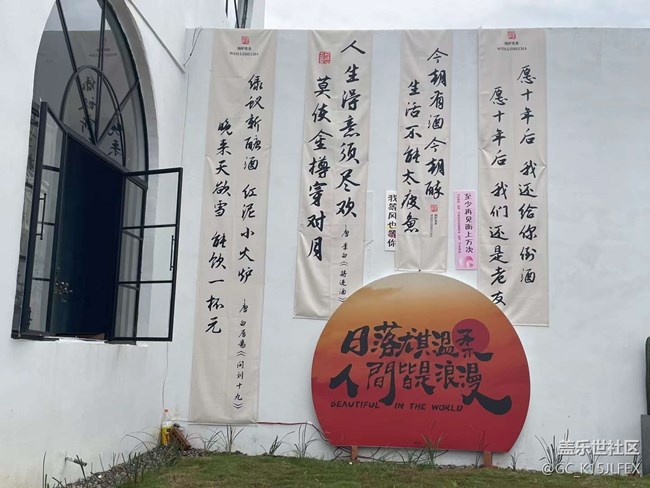 WEILUZHUCHA
绿议新醅酒 红泥小火炉
晚来天欲雪 能饮一杯无
唐 白居易《问刘十九》
人生得意须尽欢
莫使金樽空对月
唐 李白《将进酒》
今朝有酒今朝醉
生活不能太疲惫
围炉煮茶
WEILUZHUCHA
愿十年后 我还给你倒酒
愿十年后 我们还是老友
我等风也等你
至少再见面上万次
日落尤其温柔
人間皆是浪漫
BEAUTIFUL IN THE WORLD
盖乐世社区
@GC_K15JLFEX